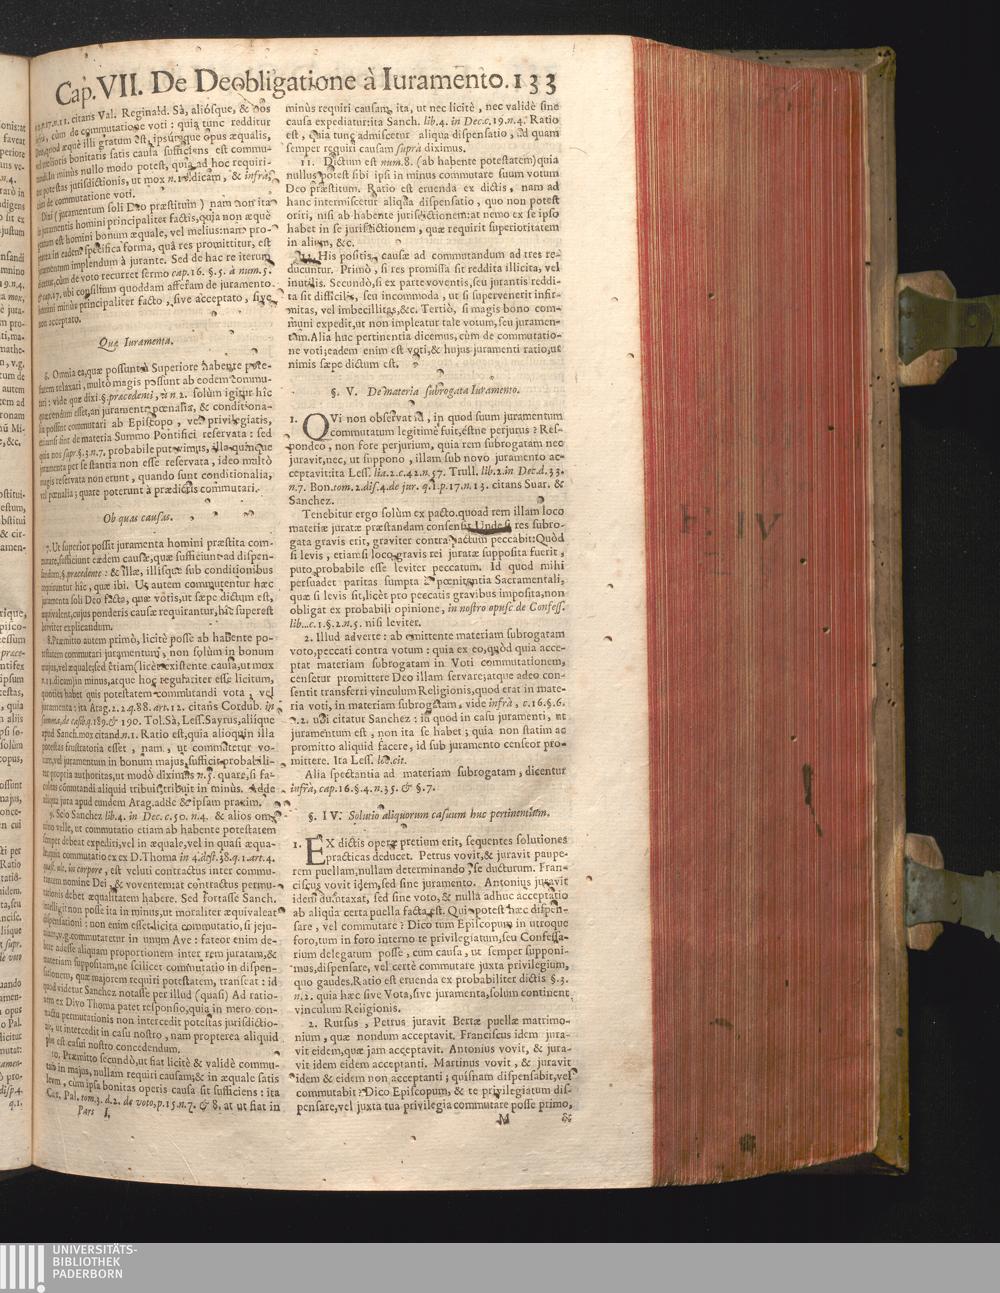 Cap. VII. De Deobligatione à Iuramento. 133
citans Val. Reginald. Sà, aliósque, & nos
cùm de commutatione voti : quia tunc redditur
Deo, quod æquè illi gratum est, ipsúmque opus æqualis,
vel melioris bonitatis satis causa sufficiens est commu-
In minùs nullo modo potest, quia ad hoc requiri-
tur potestas jurisdictionis, ut mox n.11. dicam, & infrà,
cùm de commutatione voti.
Dixi (juramentum soli Deo præstitum) nam non ita
in juramentis homini principaliter factis, quia non æquè
gratum est homini bonum æquale, vel melius: nam pro-
in eadem specifica forma, quâ res promittitur, est
juramentum implendum à jurante. Sed de hac re iterum
cùm de voto recurret sermo cap. 16. §. 5. à num. 5.
& cap. 17. ubi consilium quoddam afferam de juramento
homini minùs principaliter facto, sive acceptato, sive
non acceptato.
Quæ Iuramenta.
6. Omnia ea, quæ possunt à Superiore habente pote-
statem relaxari, multò magis possunt ab eodem commu-
tari : vide quæ dixi §. præcedenti, à n 2. solùm igitur hic
quærendum esset, an juramenta pœnalia, & conditiona-
lia possint commutari ab Episcopo, vel privilegiatis,
etiamsi sint de materia Summo Pontifici reservata : sed
quia nos supr. §. 3. n. 7. probabile putavimus, illa quinque
juramenta per se stantia non esse reservata, ideo multò
magis reservata non erunt, quando sunt conditionalia,
vel pœnalia; quare poterunt à prædictis commutari.
Ob quas causas.
7. Ut superior possit juramenta homini præstita com-
mutare, sufficiunt eædem causæ, quæ sufficiunt ad dispen-
sandum, §. præcedente : & illæ, illisque sub conditionibus
requiruntur hîc, quæ ibi. Ut autem commutentur hæc
juramenta soli Deo facta, quæ votis, ut sæpe dictum est,
æquivalent, cujus ponderis causæ requirantur, hîc superest
breviter explicandum.
8. Præmitto autem primò, licitè posse ab habente po-
testatem commutari juramentum, non solùm in bonum
majus, vel æquale, sed etiam (licèt existente causa, ut mox
n. 11. dicam) in minus, atque hoc regulariter esse licitum,
quoties habet quis potestatem commutandi vota, vel
juramenta : ita Arag. 2. 2. q. 88. art. 12. citans Cordub. in
summa, de casib. q. 189. & 190. Tol. Sà, Less. Sayrus, aliíque
apud Sanch. mox citand. n. 1. Ratio est, quia alioquin illa
potestas frustratoria esset, nam, ut commutetur vo-
tum, vel juramentum in bonum majus, sufficit probabili-
ter propria authoritas, ut modò diximus n. 5. quare, si fa-
cultas commutandi aliquid tribuit, tribuit in minùs. Adde
aliqua jura apud eundem Arag. adde & ipsam praxim.
9. Scio Sanchez lib. 4. in Dec. c. 50. n. 4. & alios om-
nino velle, ut commutatio etiam ab habente potestatem
semper debeat expediri, vel in æquale, vel in quasi æqua-
le; quia commutatio ex ex D. Thoma in 4. dist. 38. q. 1. art. 4.
quæst. ult. in corpore, est veluti contractus inter commu-
tantem nomine Dei, & voventem: at contractus permu-
tationis debet æqualitatem habere. Sed fortasse Sanch.
intelligit non posse ita in minus, ut moraliter æquivaleat
dispensationi : non enim esset licita commutatio, si jeju-
nium, v.g. commutaretur in unum Ave : fateor enim de-
bere adesse aliquam proportionem inter rem juratam, &
materiam suppositam, ne scilicet commutatio in dispen-
sationem, quæ majorem requirit potestatem, transeat : id
quod videtur Sanchez notasse per illud (quasi) Ad ratio-
nem ex Divo Thoma patet responsio, quia in mero con-
tractu permutationis non intercedit potestas jurisdictio-
nis, ut intercedit in casu nostro, nam propterea aliquid
plus est casui nostro concedendum.
10. Præmitto secundò, ut fiat licitè & validè commu-
tatio in majus, nullam requiri causam; & in æquale satis
levem, cùm ipsa bonitas operis causa sit sufficiens : ita
Cas. Pal. tom. 3. d. 2. de voto, p. 15. n. 7. & 8. at ut fiat in
Pars I.
minùs requiri causam, ita, ut nec licitè, nec validè sine
causa expediatur: ita Sanch. lib. 4. in Dec. c. 19. n. 4. Ratio
est, quia tunc admiscetur aliqua dispensatio, ad quam
semper requiri causam suprà diximus.
11. Dictum est num. 8. (ab habente potestatem) quia
nullus potest sibi ipsi in minus commutare suum votum
Deo præstitum. Ratio est eruenda ex dictis, nam ad
hanc intermiscetur aliqua dispensatio, quo non potest
oriri, nisi ab habente jurisdictionem: at nemo ex se ipso
habet in se jurisdictionem, quæ requirit superioritatem
in alium, &c.
His positis, causæ ad commutandum ad tres re-
ducuntur. Primò, si res promissa sit reddita illicita, vel
inutilis. Secundò, si ex parte voventis, seu jurantis reddi-
ta sit difficilis, seu incommoda, ut si supervenerit infir-
mitas, vel imbecillitas, &c. Tertiò, si magis bono com-
muni expedit, ut non impleatur tale votum, seu juramen-
tum. Alia huc pertinentia dicemus, cùm de commutatio-
ne voti; eadem enim est voti, & hujus juramenti ratio, ut
nimis sæpe dictum est.
§. V. De materia subrogata Iuramento.
1. QVi non observat id, in quod suum juramentum
commutatum legitimè fuit, éstne perjurus ? Res-
pondeo, non fore perjurium, quia rem subrogatam nec
juravit, nec, ut suppono, illam sub novo juramento ac-
ceptavit: ita Less. lib. 2. c. 42. n. 57. Trull. lib. 2. in Dec. d. 33.
n. 7. Bon. tom. 2. dis. 4. de jur. q. 1. p. 17. n. 13. citans Suar. &
Sanchez.
Tenebitur ergo solùm ex pacto, quoad rem illam loco
materiæ juratæ præstandam consensit. Unde si res subro-
gata gravis erit, graviter contra pactum peccabit: Quòd
si levis, etiamsi loco gravis rei juratæ supposita fuerit,
puto probabile esse leviter peccatum. Id quod mihi
persuadet paritas sumpta à pœnitentia Sacramentali,
quæ si levis sit, licèt pro peccatis gravibus imposita, non
obligat ex probabili opinione, in nostro opusc. de Confess.
lib. . c. 1. §. 2. n. 5. nisi leviter.
2. Illud adverte : ab omittente materiam subrogatam
voto, peccati contra votum : quia ex eo, quòd quia acce-
ptat materiam subrogatam in Voti commutationem,
censetur promittere Deo illam servare; atque adeo con-
sentit transferri vinculum Religionis, quod erat in mate-
ria voti, in materiam subrogatam, vide infrà, c. 16. §. 6.
n. 2. ubi citatur Sanchez : ia quod in casu juramenti, ut
juramentum est, non ita se habet; quia non statim ac
promitto aliquid facere, id sub juramento censeor pro-
mittere. Ita Less. loc. cit.
Alia spectantia ad materiam subrogatam, dicentur
infrà, cap. 16. §. 4. n. 35. & §. 7.
§. IV. Solutio aliquorum casuum huc pertinentium.
1. EX dictis operæ pretium erit, sequentes solutiones
practicas deducet. Petrus vovit, & juravit paupe-
rem puellam, nullam determinando, se ducturum. Fran-
ciscus vovit idem, sed sine juramento. Antonius juravit
idem duntaxat, sed sine voto, & nulla adhuc acceptatio
ab aliqua certa puella facta est. Qui potest hæc dispen-
sare, vel commutare ? Dico tum Episcopum in utroque
foro, tum in foro interno te privilegiatum, seu Confessa-
rium delegatum posse, cum causa, ut semper supponi-
mus, dispensare, vel certè commutare juxta privilegium,
quo gaudes. Ratio est eruenda ex probabiliter dictis §. 3.
n. 2. quia hæc sive Vota, sive juramenta, solùm continent
vinculum Religionis.
2. Rursus, Petrus juravit Bertæ puellæ matrimo-
nium, quæ nondum acceptavit. Franciscus idem jura-
vit eidem, quæ jam acceptavit. Antonius vovit, & jura-
vit idem eidem acceptanti. Martinus vovit, & juravit
idem & eidem non acceptanti; quisnam dispensabit, vel
commutabit ? Dico Episcopum, & te privilegiatum dis-
pensare, vel juxta tua privilegia commutare posse primo,
M &
F. IV
UNIVERSITÄTS-
BIBLIOTHEK
PADERBORN